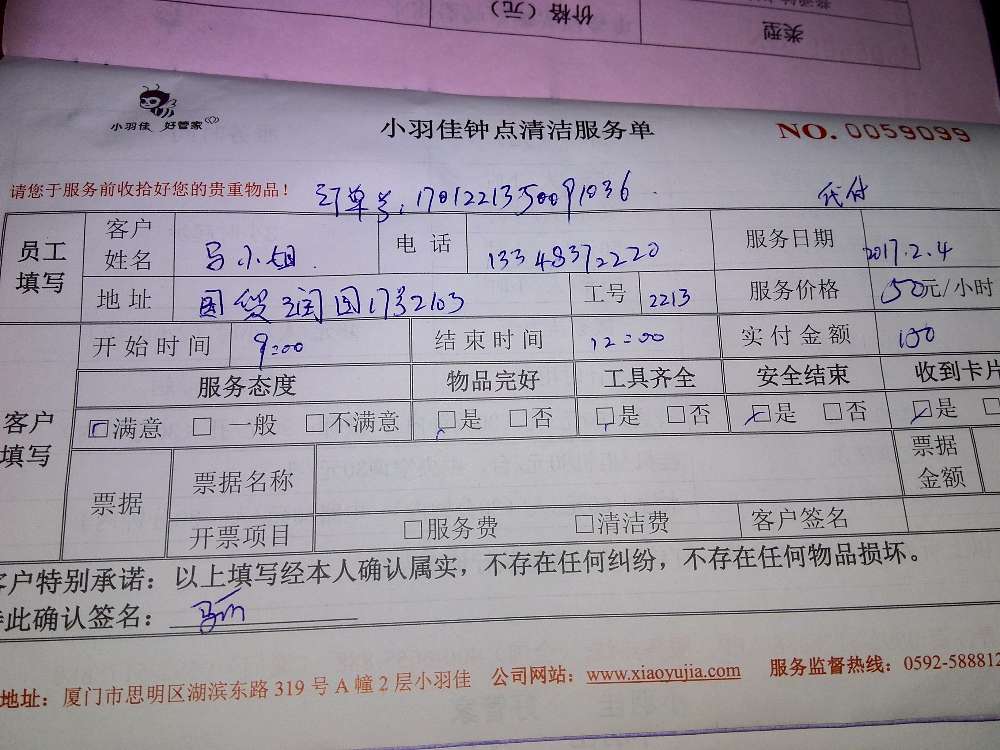 价格（元）
类型
小羽佳 好管家
小羽佳钟点清洁服务单
NO. 0059099
请您于服务前收拾好您的贵重物品！
订单号：1701221350091036
代付
员工填写
客户姓名 马小姐
电话 13348372220
服务日期 2017.2.4
地址 国贸润园17号2103
工号 2213
服务价格 50元/小时
客户填写
开始时间 9:00
结束时间 12:00
实付金额 150
服务态度 物品完好 工具齐全 安全结束 收到卡片
□满意 □一般 □不满意 □是 □否 □是 □否 □是 □否 □是 □
票据
票据名称
票据金额
开票项目 □服务费 □清洁费 客户签名
客户特别承诺：以上填写经本人确认属实，不存在任何纠纷，不存在任何物品损坏。
此确认签名：
地址：厦门市思明区湖滨东路319号A幢2层小羽佳 公司网站：www.xiaoyujia.com 服务监督热线：0592-588812